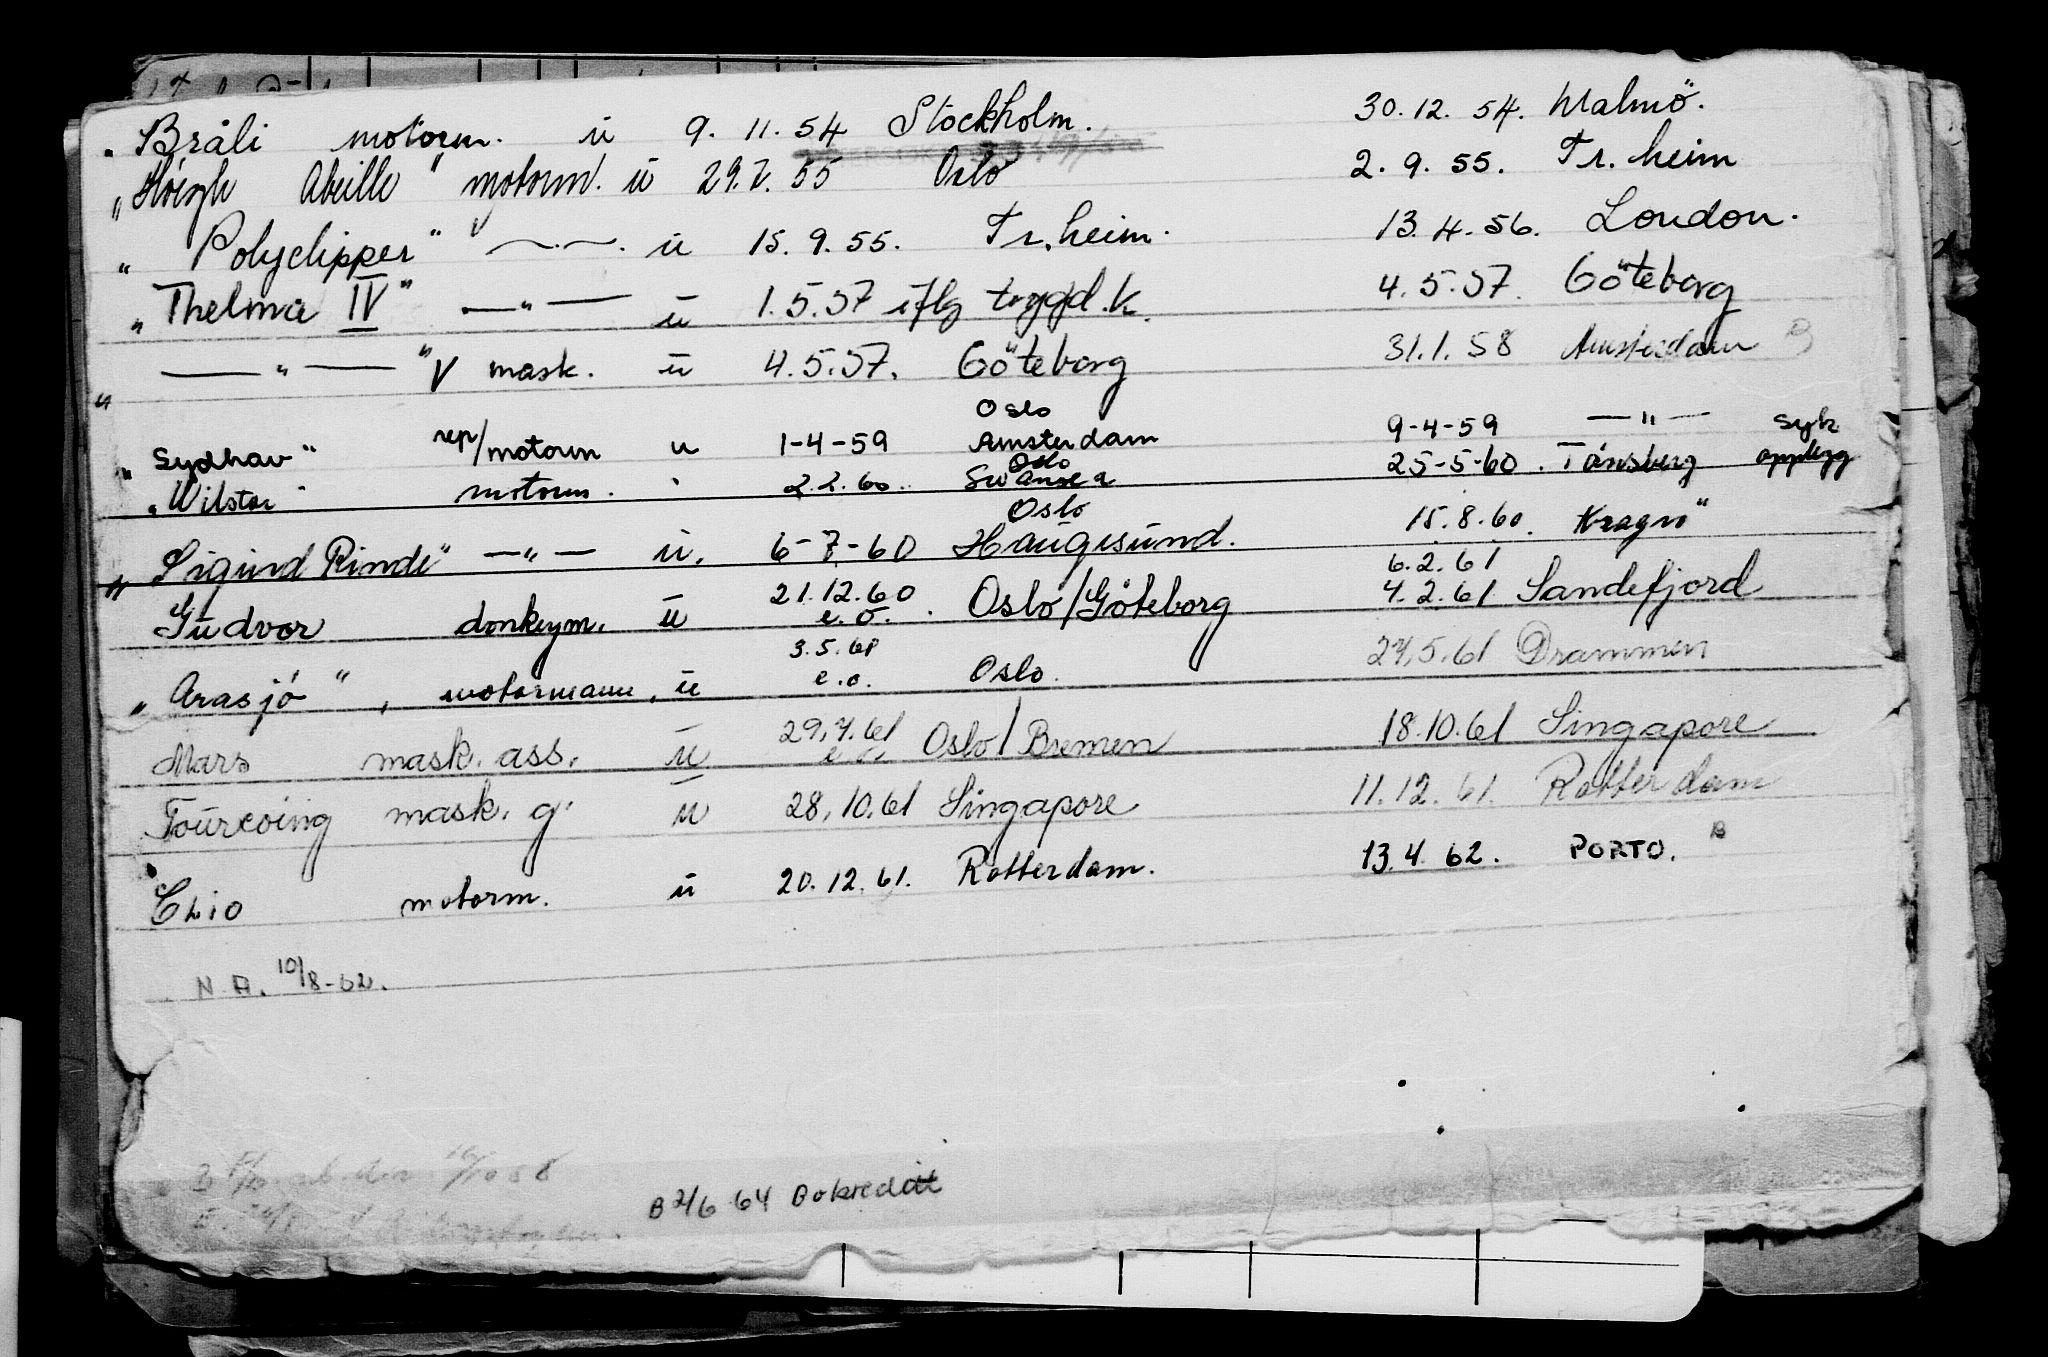 „ Bråli motorm. u 9. 11. 54 Stockholm. 30. 12. 54. Malmö.
„Höegh Abeille" motorm. u 29.7. 55 Oslo 2. 9. 55. Tr. heim
„ Polyclipper" —.—. u 15. 9. 55. Tr. heim. 13. 4. 56. London.
„ Thelma IV" —"— u 1. 5. 57 iflg trygd.k. 4. 5. 57. Göteborg
„ —"— "V mask. u 4. 5. 57. Göteborg 31. 1. 58 Amsterdam B
Oslo
„ Sydhav" rep/motorm u 1-4-59 Amsterdam 9-4-59 —"— syk
Oslo
„ Wilstar motorm. " 2. 2. 60. Swansea 25-5-60. Tønsberg opplegg
Oslo
„ Sigurd Rinde" —"— u. 6-7-60 Haugesund. 15. 8. 60. Kragrø"
21. 12. 60 6. 2. 61
Gudvor donkeym. u e. o. Oslo/Göteborg 4. 2. 61 Sandefjord
3. 5. 61
„ Arasjö ", motormann, u e. o. Oslo. 27. 5. 61 Drammen
29. 7. 61
Mars mask. ass. u e. o. Oslo/Bremen 18. 10. 61 Singapore
Tourcoing mask. g. u 28. 10. 61 Singapore 11. 12. 61. Rotterdam
Chio motorm. u 20. 12. 61. Rotterdam. 13. 4. 62. PORTO. B
N. A. 10/8-62.
B 2/6 64 Dokredit